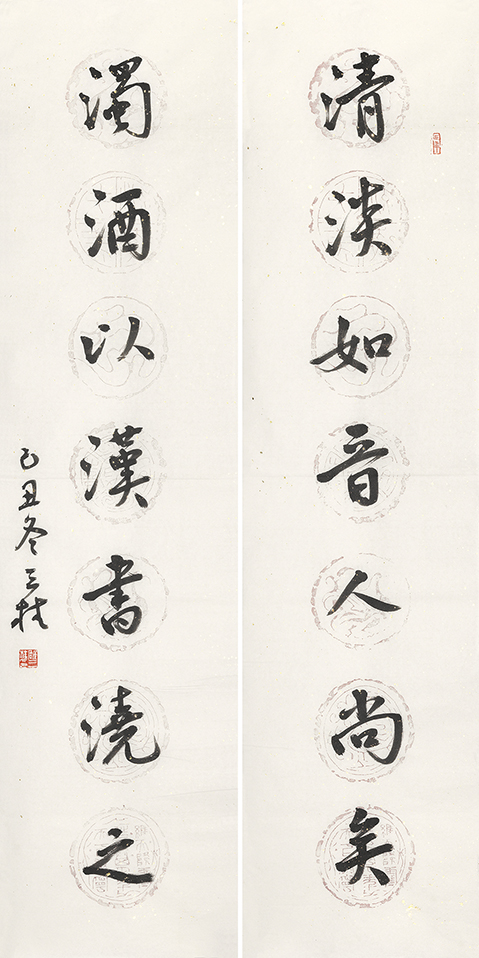 清淡如晋人尚矣
濁酒以漢書澆之
己丑冬